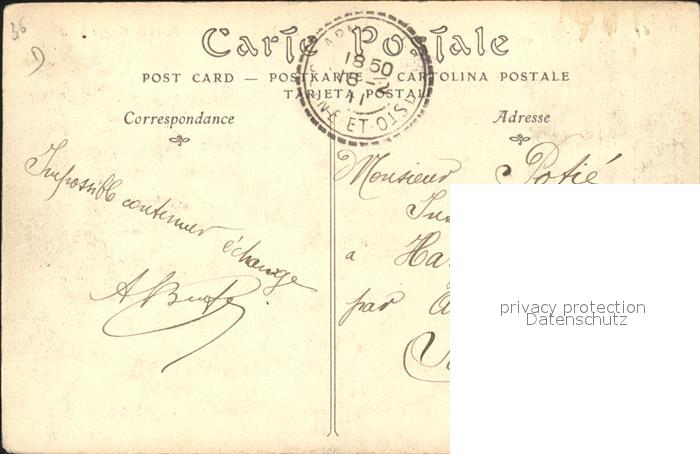 36
D.
Carte Postale
POST CARD — POSTKARTE — CARTOLINA POSTALE
TARJETA POSTAL
18 50
15-2
11
NE-ET-OISE
Correspondance
Impossible continuer échange
Adresse
Monsieur Potié
a Ha
par
privacy protection
Datenschutz